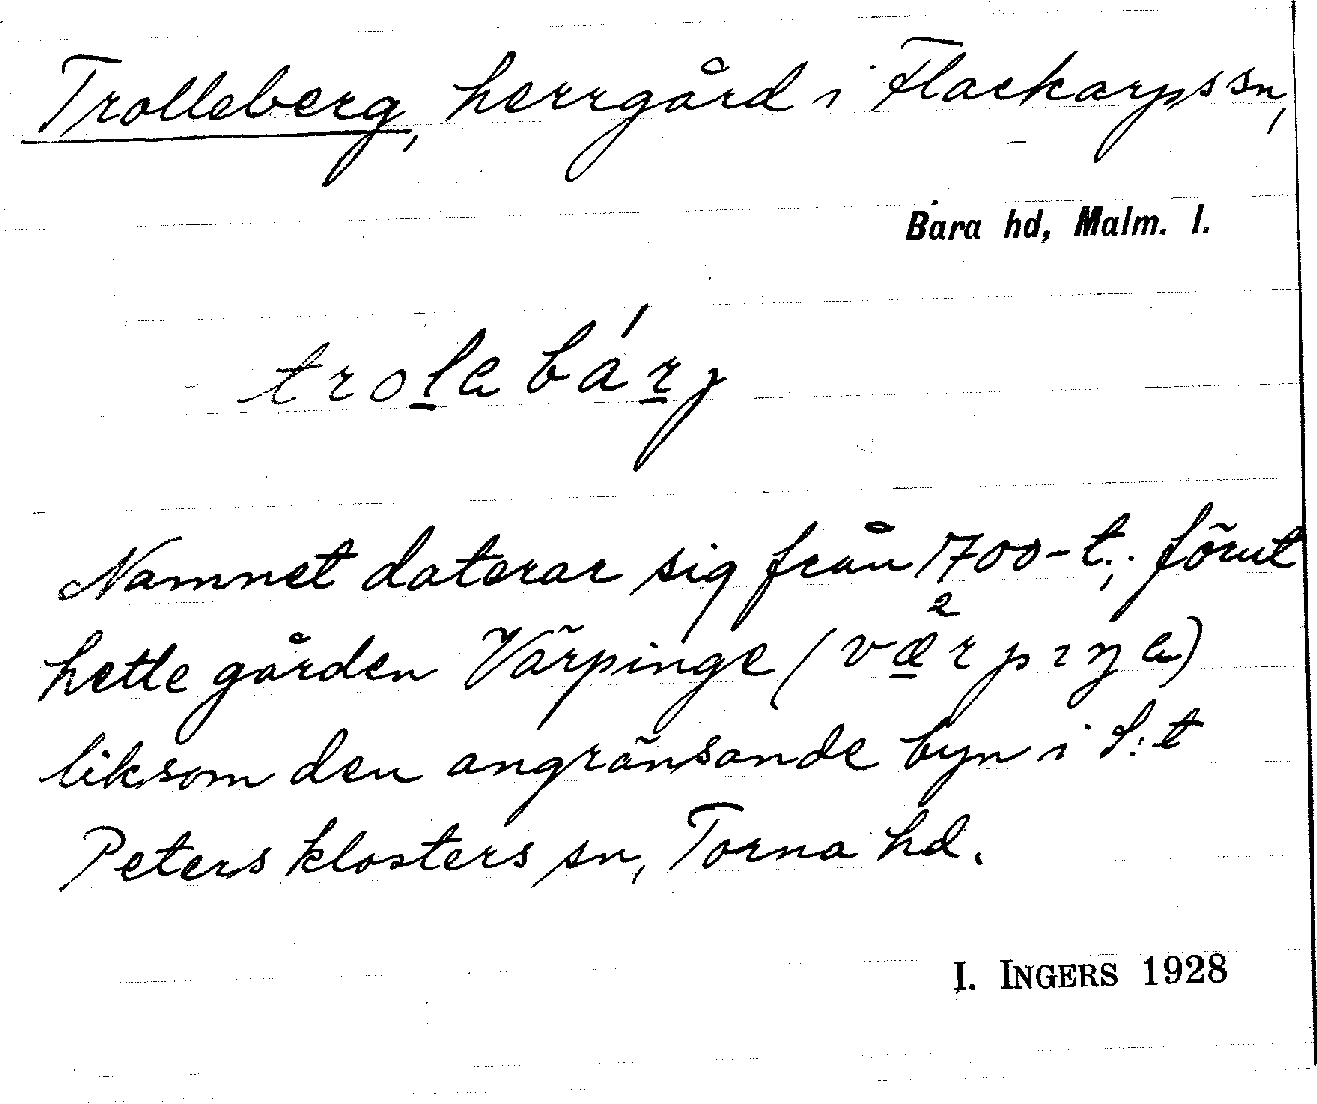 Trolleberg, herrgård i Flackarps sn,
Bara hd, Malm. l.
trolabárj
Namnet daterar sig från 1700-t.; förut
hette gården Värpinge (værpıŋa)
liksom den angränsande byn i S:t
Peters klosters sn, Torna hd.
I. INGERS 1928